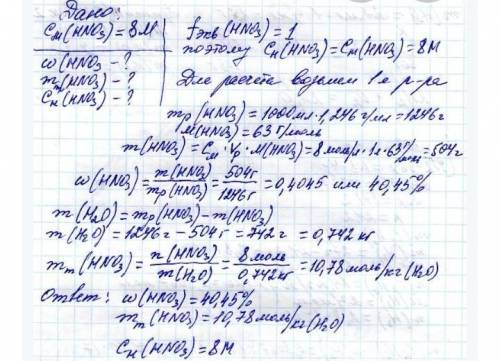 Дано:
Cм(HNO3) = 8M
ω(HNO3 - ?
mm(HNO3) - ?
Cн(HNO3) - ?
fэкв(HNO3) = 1
поэтому Cн(HNO3) = Cм(HNO3) = 8M
Для расчёта возьмём 1л р-ра
mр(HNO3) = 1000мл·1,246г/мл = 1246г
M(HNO3) = 63г/моль
m(HNO3) = Cм·Vр·M(HNO3) = 8моль/л·1л·63г/моль = 504г
ω(HNO3) = m(HNO3)/mр(HNO3) = 504г/1246г = 0,4045 или 40,45%
m(H2O) = mр(HNO3) - m(HNO3)
m(H2O) = 1246г - 504г = 742г = 0,742кг
mm(HNO3) = n(HNO3)/m(H2O) = 8моль/0,742кг = 10,78моль/кг(H2O)
Ответ: ω(HNO3) = 40,45%
mm(HNO3) = 10,78моль/кг(H2O)
Cн(HNO3) = 8M